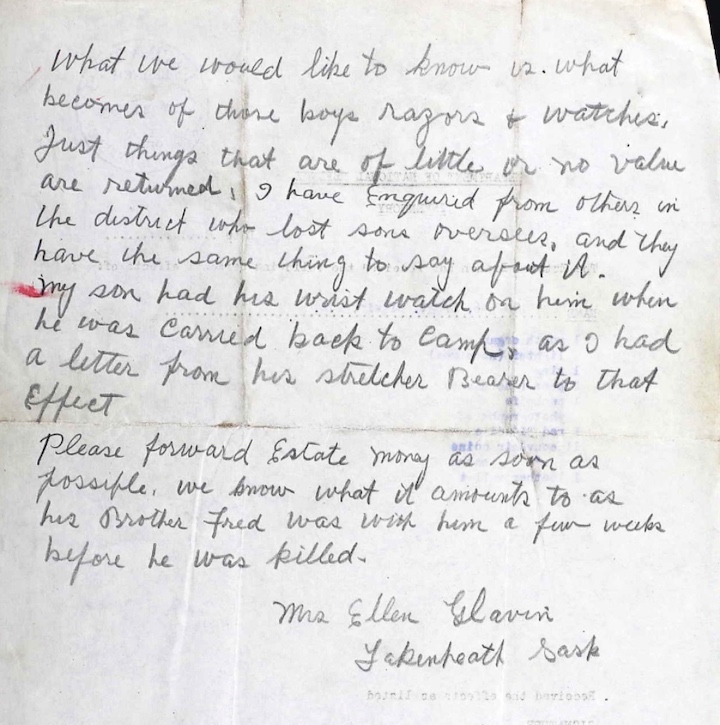 What we would like to know is. what
becomes of those boys razors & watches.
Just things that are of little or no value
are returned. I have Enquired from others in
the district who lost sons oversees, and they
have the same thing to say about it.
My son had his wrist watch on him when
he was carried back to Camp, as I had
a letter from his stretcher Bearer to that
Effect
Please forward Estate money as soon as
possible. we know what it amounts to as
his Brother Fred was with him a few weeks
before he was killed.
Mrs Ellen Glavin
Lakenheath Sask
Received the effects as listed